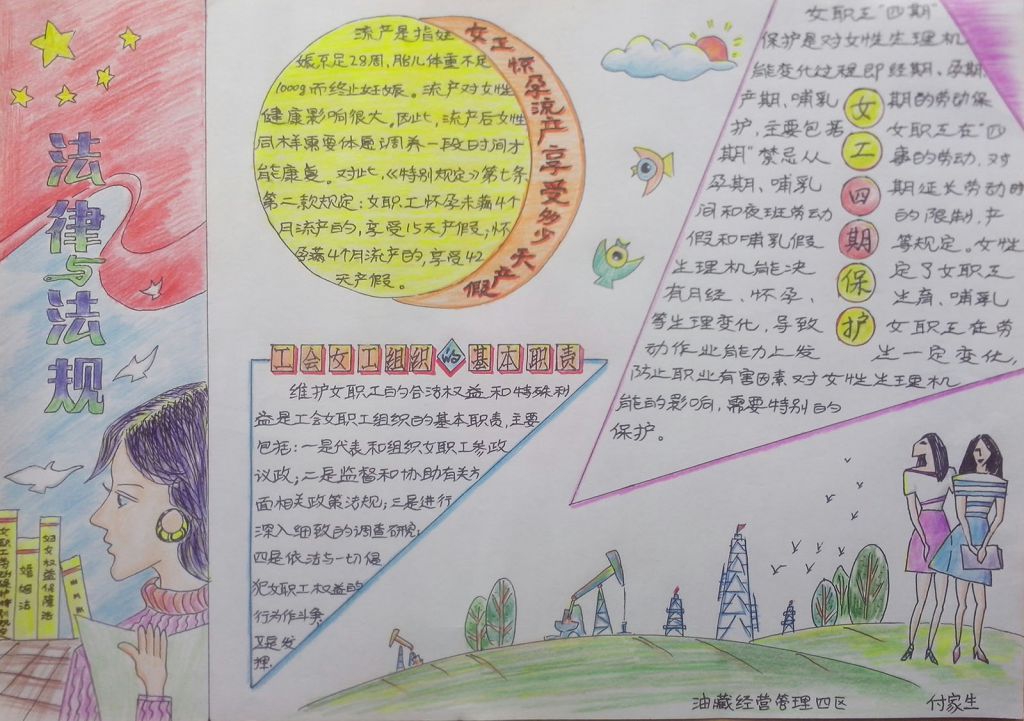 法律与法规
女职工劳动保护特别规定
婚姻法
妇女权益保障法
女工怀孕流产享受多少天产假
流产是指妊
娠不足28周，胎儿体重不足
1000g而终止妊娠。流产对女性
健康影响很大。因此，流产后女性
同样需要休息调养一段时间才
能康复。对此，《特别规定》第七条
第二款规定：女职工怀孕未满4个
月流产的，享受15天产假；怀
孕满4个月流产的，享受42
天产假。
工会女工组织的基本职责
维护女职工的合法权益和特殊利
益是工会女职工组织的基本职责，主要
包括：一是代表和组织女职工参政
议政；二是监督和协助有关方
面相关政策法规；三是进行
深入细致的调查研究；
四是依法与一切侵
犯女职工权益的
行为作斗争
五是发
挥.
女工四期保护
女职工“四期”
保护是对女性生理机
能变化过程即经期、孕期、
产期、哺乳 期的劳动保
护，主要包括 女职工在“四
期”禁忌从 事的劳动，对
孕期、哺乳 期延长劳动时
间和夜班劳动 的限制，产
假和哺乳假 等规定。女性
生理机能决 定了女职工
有月经、怀孕、 生育、哺乳
等生理变化，导致 女职工在劳
动作业能力上发 生一定变化，
防止职业有害因素对女性生理机
能的影响，需要特别的
保护。
油藏经营管理四区 付家生